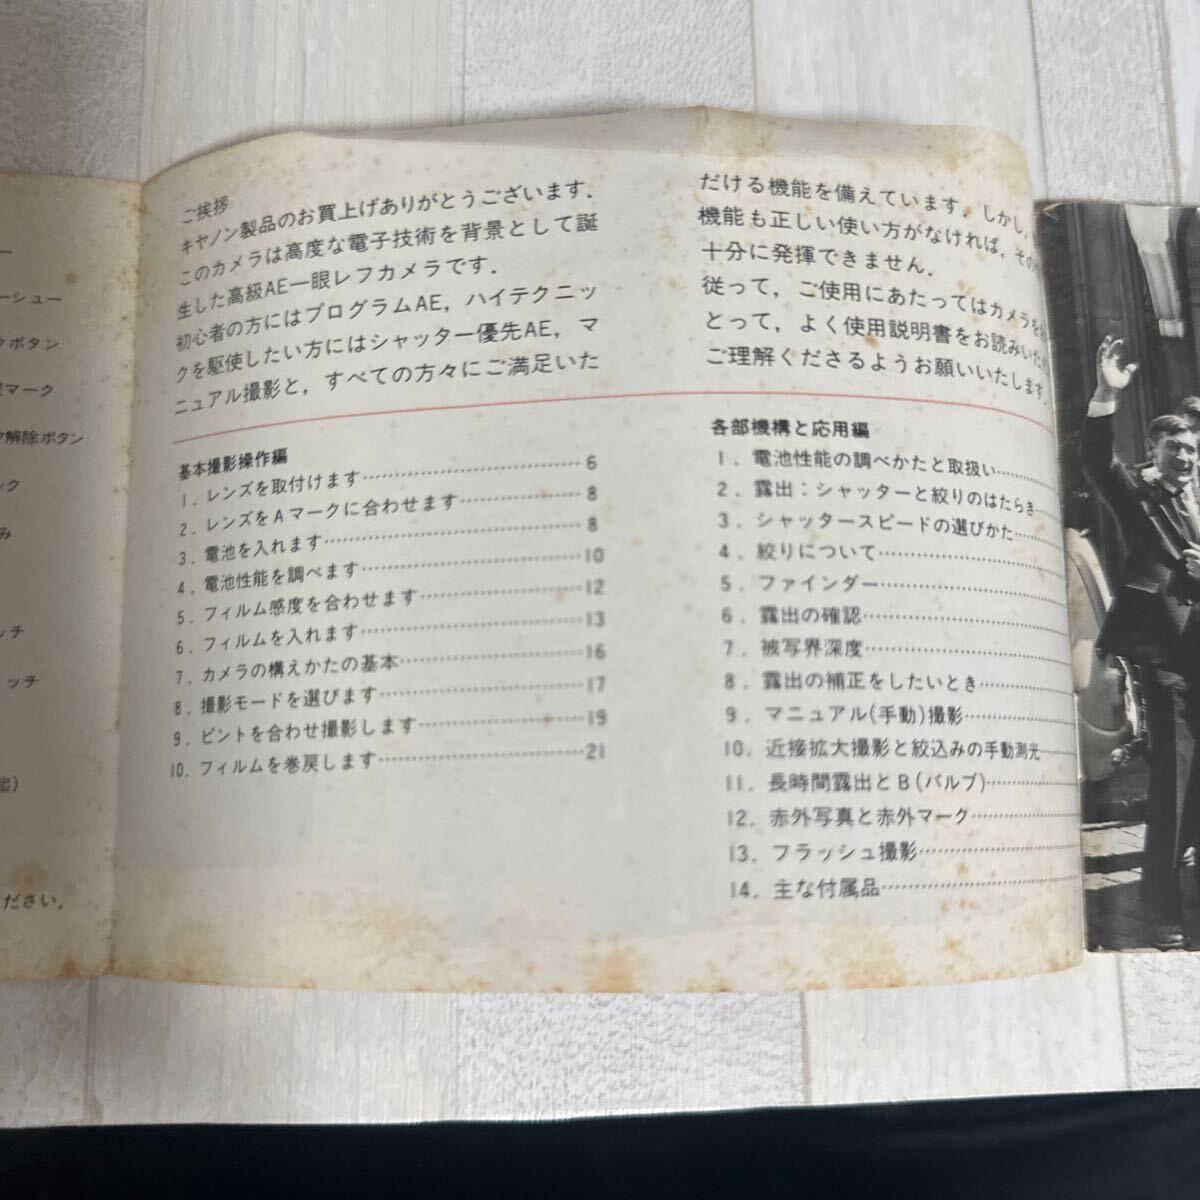 ーシュー
クボタン
マーク
解除ボタン
ック
み
ッチ
イッチ
ださい．
ご挨拶
キヤノン製品のお買上げありがとうございます．
このカメラは高度な電子技術を背景として誕
生した高級AE一眼レフカメラです．
初心者の方にはプログラムAE，ハイテクニッ
クを駆使したい方にはシャッター優先AE，マ
ニュアル撮影と，すべての方々にご満足いた
だける機能を備えています．しかし，
機能も正しい使い方がなければ，その
十分に発揮できません．
従って，ご使用にあたってはカメラを
とって，よく使用説明書をお読みいた
ご理解くださるようお願いいたします．
基本撮影操作編
1．レンズを取付けます……………………………6
2．レンズをAマークに合わせます……………8
3．電池を入れます…………………………………8
4．電池性能を調べます…………………………10
5．フィルム感度を合わせます…………………12
6．フィルムを入れます…………………………13
7．カメラの構えかたの基本……………………16
8．撮影モードを選びます………………………17
9．ピントを合わせ撮影します…………………19
10．フィルムを巻戻します………………………21
各部機構と応用編
1．電池性能の調べかたと取扱い………
2．露出：シャッターと絞りのはたらき……
3．シャッタースピードの選びかた………
4．絞りについて………………………
5．ファインダー………………………
6．露出の確認…………………………
7．被写界深度…………………………
8．露出の補正をしたいとき……………
9．マニュアル(手動)撮影………………
10．近接拡大撮影と絞込みの手動測光……
11．長時間露出とB(バルブ)……………
12．赤外写真と赤外マーク………………
13．フラッシュ撮影……………………
14．主な付属品…………………………